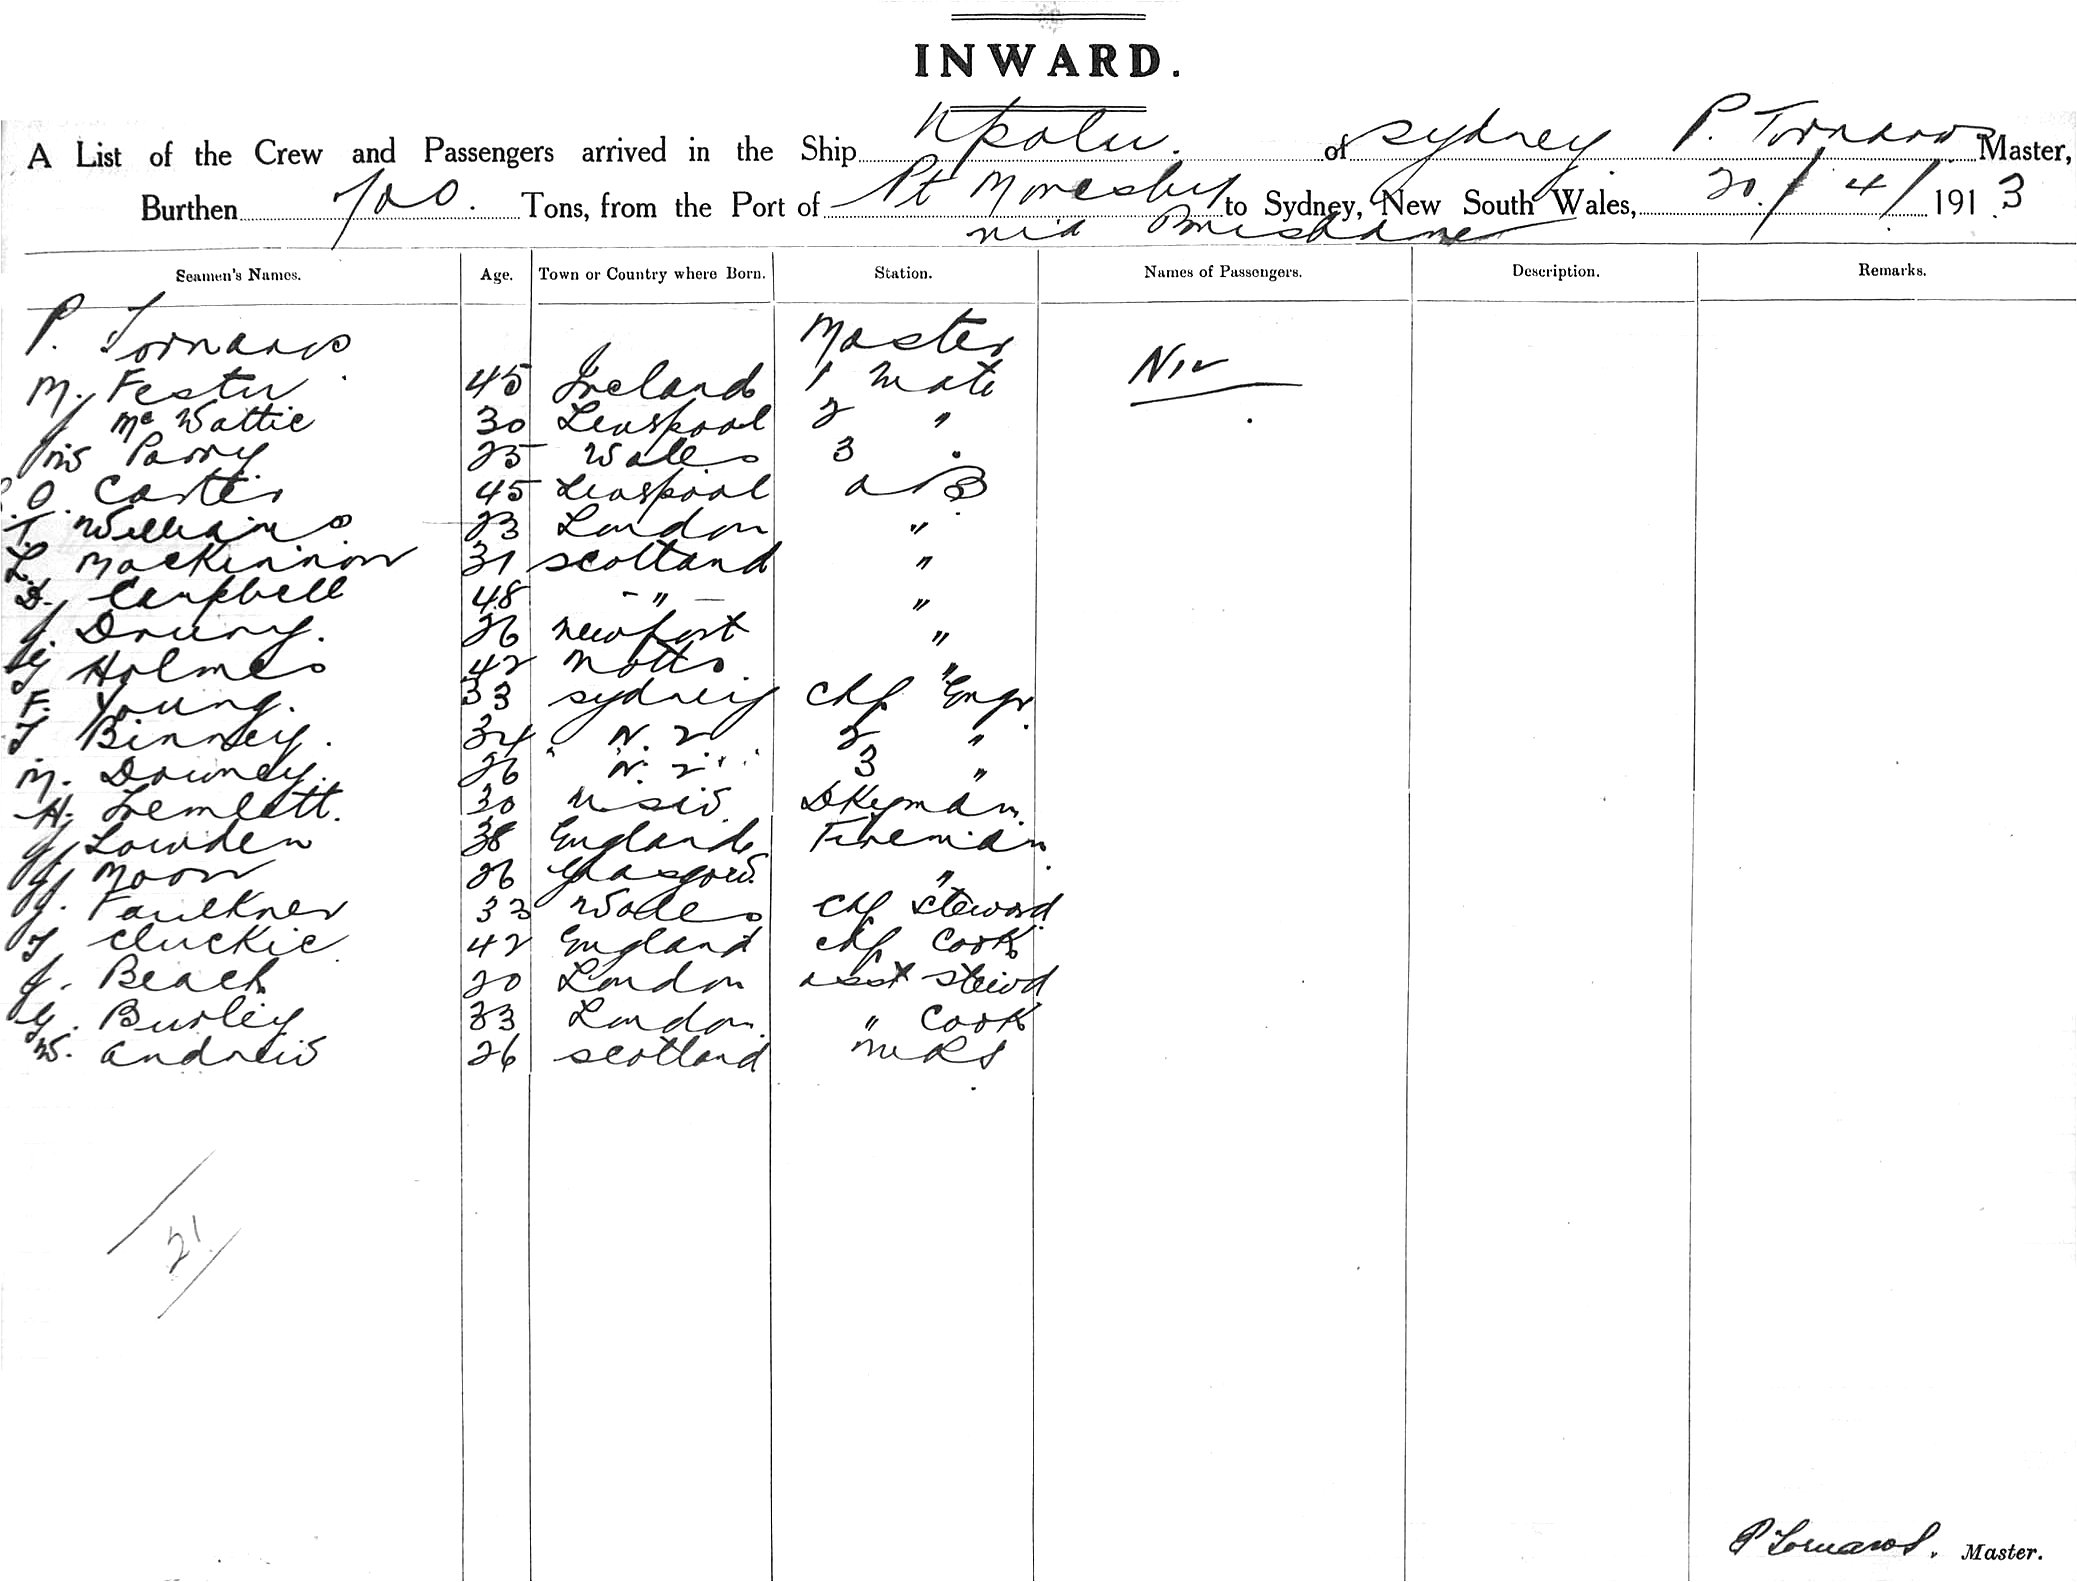 INWARD.
A List of the Crew and Passengers arrived in the Ship Upolu. of Sydney P. Tornaros Master,
Burthen 700. Tons, from the Port of Pt Moresby to Sydney, New South Wales, 20/4/1913
via Brisbane
Seamen's Names. Age. Town or Country where Born. Station. Names of Passengers. Description. Remarks.
P. Tornaros Master
M. Fester 45 Ireland 1 Mate Nil
J Mc Wattie 30 Liverpool 2 "
Parry 25 Wales 3
O. Carter 45 Liverpool AB
T. Williams 23 London "
L. MacKinnon 31 Scotland "
D. Campbell 48 - " - "
J. Drury. 26 Newport "
G Holmes 42 Notts "
F. Young. 33 Sydney Chf Engr
T Binney. 34 N. Z 2 "
M. Downey. 26 N. Z 3 "
H. Tremlett. 30 N.S.W. DKyman
J Lowden 38 England Fireman
J Moon 26 Glasgow. "
J. Faulkner 33 Wales Chf Steward
T Cluckie 42 England Chf Cook
J. Beach 20 London asst Stewd
G. Burley 33 London. " Cook
W. Andrews 26 Scotland
21
P Tornaros. Master.